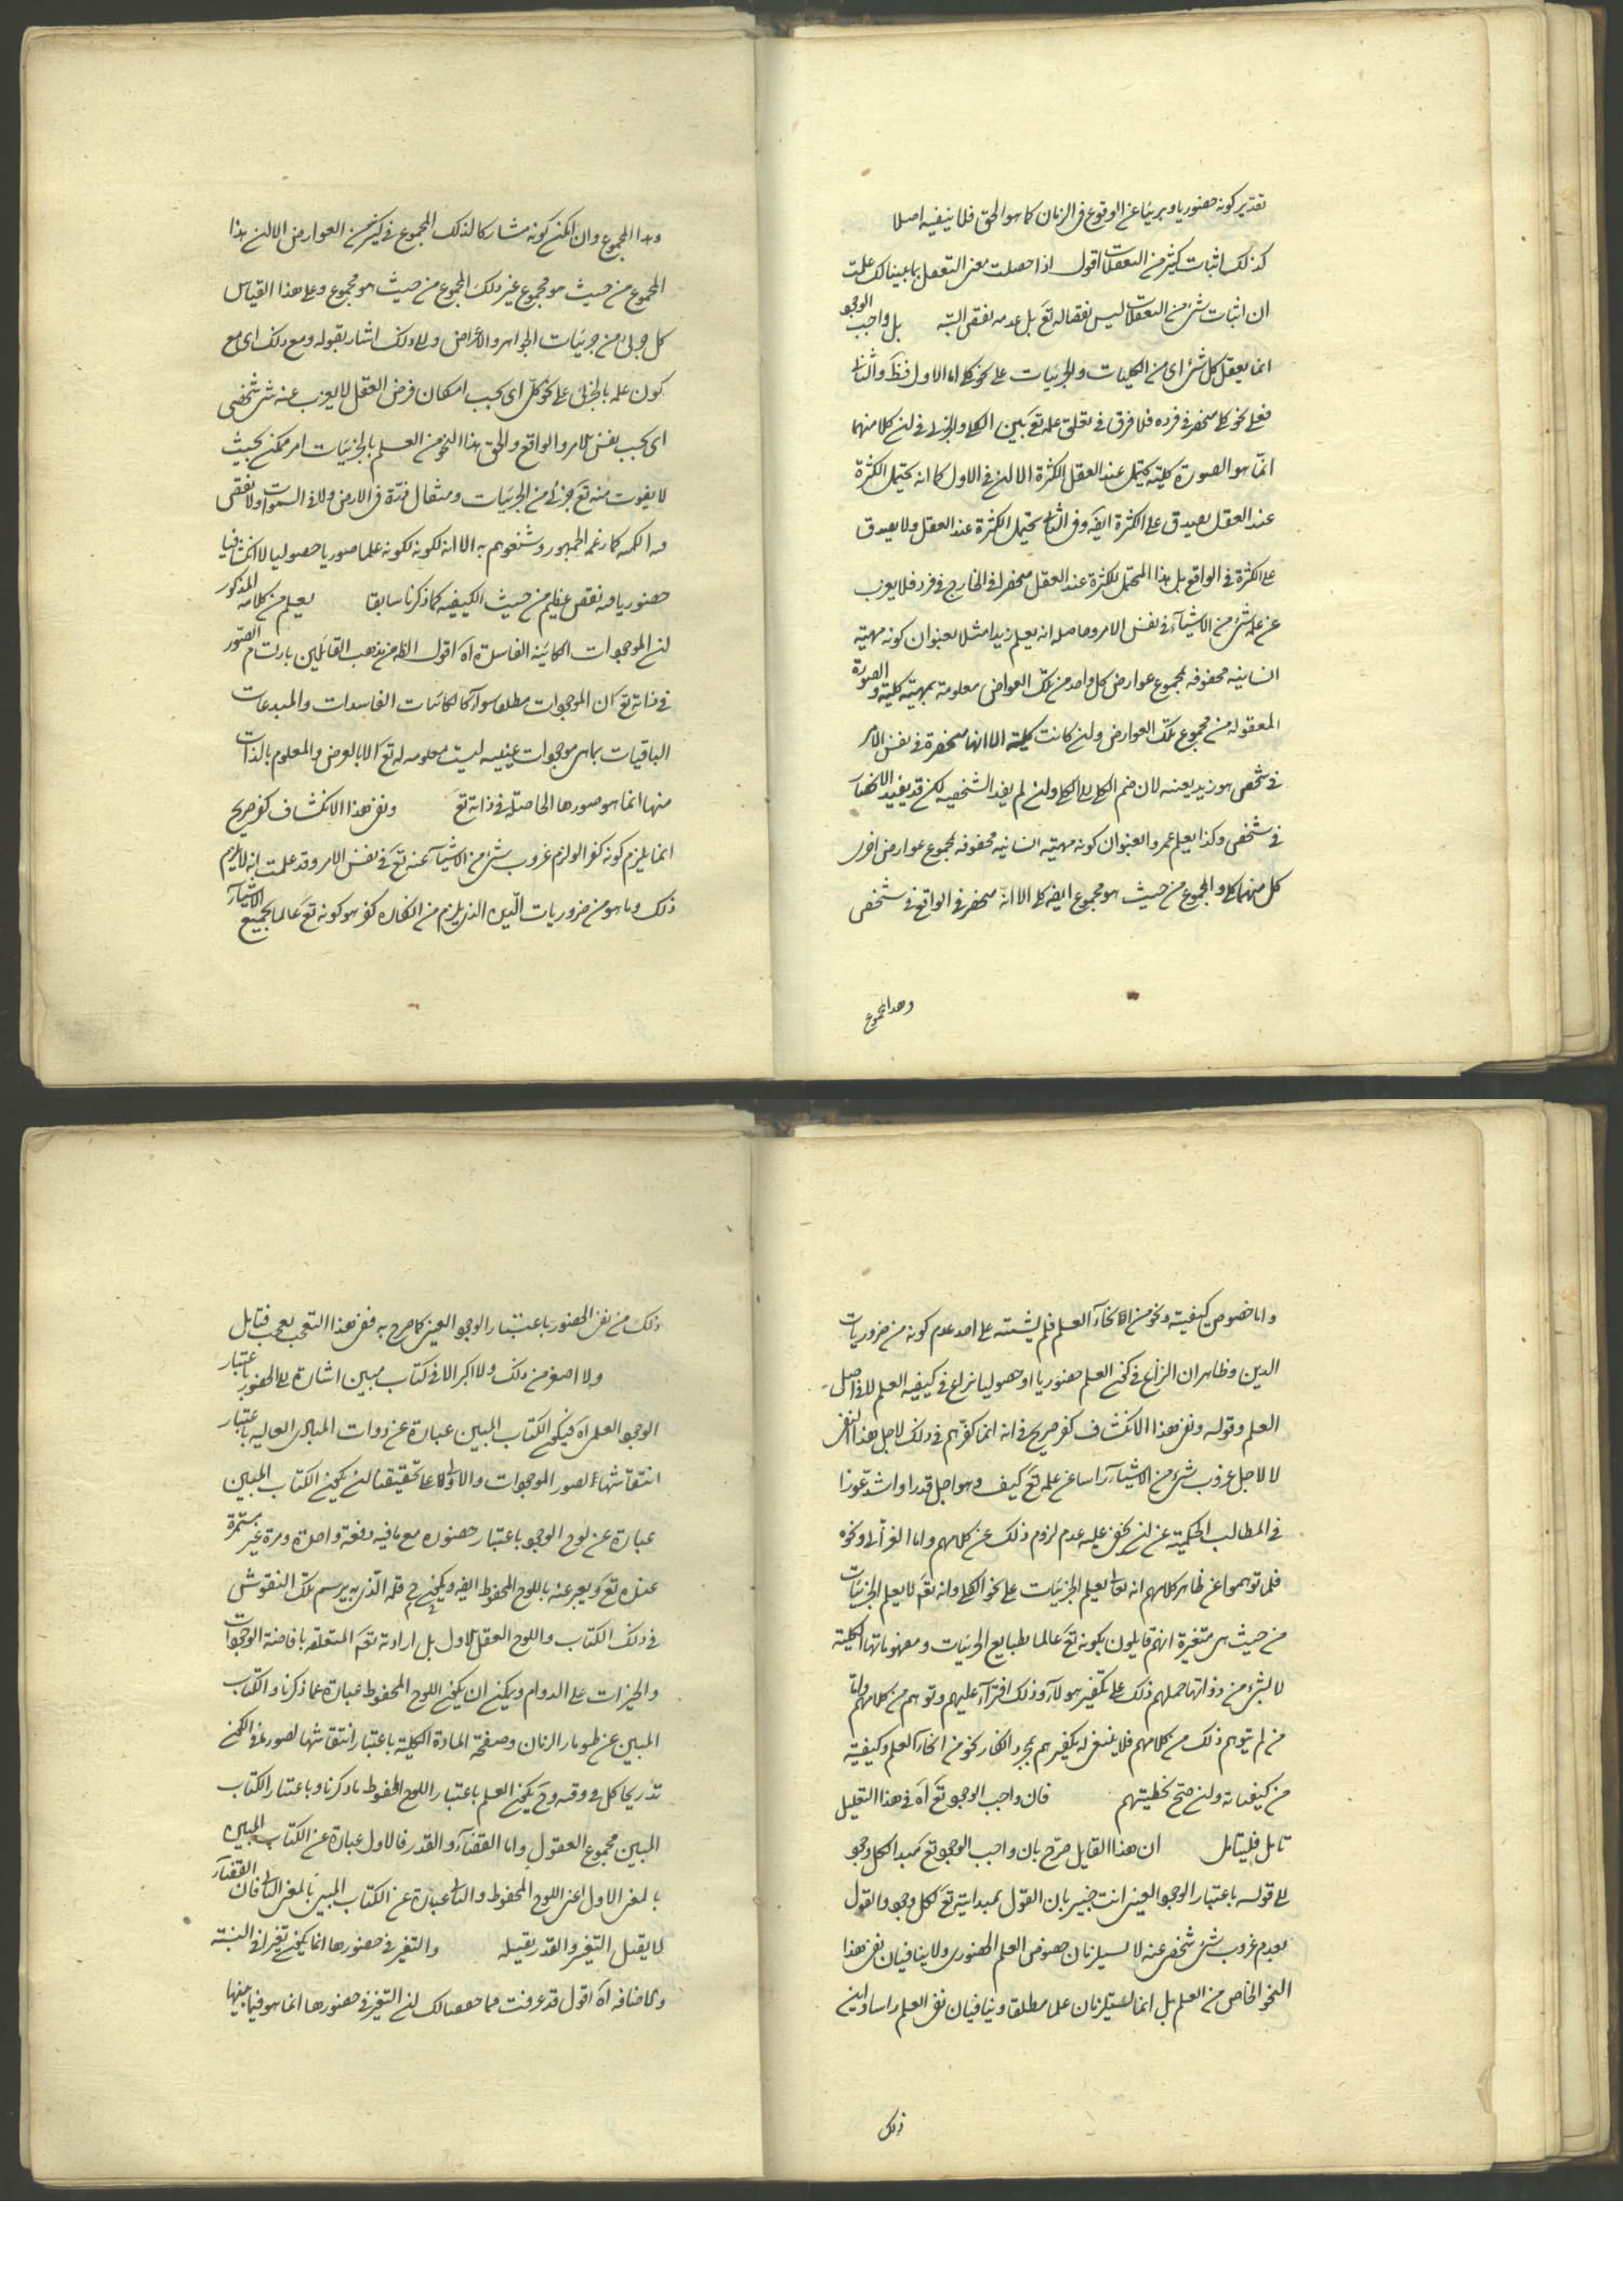 تقدير كونه حضوريا وبريئا عن الوقوع في الزمان كما هو الحق فلا ينفيه اصلا
كذلك اثبات كثير من التعقلات اقول اذا حصلت معنى التعقل بما بينا لك علمت
ان اثبات شئ من التعقلات ليس نقصا له تع بل عدمه نقص البتة بل واجب الوجو
انما يعقل كل شئ اى من الكليات والجزئيات على نحو كلى اما الاول فظ واما الثانى
فعلى نحو كلى منحصر في فرده فلا فرق في تعلق علمه تع بين الكلى والجزئى في ان كلا منهما
انما هو الصورة كلية يحتمل عند العقل الكثرة الا ان في الاول كما انه يحتمل الكثرة
عند العقل يصدق على الكثرة ايضا وفي الثانى يحتمل الكثرة عند العقل ولا يصدق
على الكثرة في الواقع بل هذا المحتمل للكثرة عند العقل منحصر في الخارج في فرد فلا يعزب
عن علمه شئ من الاشيآء في نفس الامر وحاصله انه يعلم زيدا مثلا بعنوان كونه مهية
انسانيه محفوفه بمجموع عوارض كل واحد من تلك العوارض معلومة بمهية كلية والصورة
المعقوله من مجموع تلك العوارض وان كانت كلية الا انها منحصرة في نفس الامر
في شخص هو زيد بعينه لان ضم الكلى الى الكلى وان لم يفد الشخصية لكن قد يفيد الانحصار
في شخص وكذا يعلم عمروا بعنوان كونه مهية انسانيه محفوفه بمجموع عوارض اخرى
كل منها كلى والمجموع من حيث هو مجموع ايضا كلى الا انه منحصر في الواقع في شخص
وهذا المجموع
وهذا المجموع وان امكن كونه مشاركا لذلك المجموع في كثير من العوارض الا ان هذا
المجموع من حيث هو مجموع غير ذلك المجموع من حيث هو مجموع وعلى هذا القياس
كل جزئى من جزئيات الجواهر والاعراض والى ذلك اشار بقوله ومع ذلك اى مع
كون علمه بالجزئى على نحو كلى اى بحسب امكان فرض العقل لا يعزب عنه شئ شخصى
اى بحسب نفس الامر والواقع والحق هذا النحو من العلم بالجزئيات امر ممكن بحيث
لا يفوت منه تع جزئى من الجزئيات ومثقال ذرة في الارض ولا في السموات ولا نقص
فيه الكميه كما زعمه الجمهور وشنعوهم به الا انه لكونه علما صوريا حصوليا لا انكشافيا
حضوريا فيه نقص عظيم من حيث الكيفيه كما ذكرنا سابقا يعلم من كلامه المذكور
ان الموجودات الكائنه الفاسدة اه اقول الظ من مذهب القائلين بارتسام الصور
في ذاته تع ان الموجودات مطلقا سوآء كالكائنات الفاسدات والمبدعات
الباقيات بما هى موجودات عينيه ليست معلومه له تع الا بالعرض والمعلوم بالذات
منها انما هو صورها الحاصلة في ذاته تع ونفى هذا الانكشاف كفر صريح
انما يلزم كونه كفرا لو لزم عزوب شئ من الاشيآء عنه تع في نفس الامر وقد علمت انه لا يلزم
ذلك وما هو من ضروريات الدين الذى يلزم من انكاره كفر هو كونه تع عالما بجميع الاشيآء
واما خصوص كيفيته ونحو من انحآء العلم فلم يشتبه على احد عدم كونه من ضروريات
الدين وظاهر ان النزاع في كون العلم حضوريا او حصوليا نزاع في كيفيه العلم لا في اصل
العلم وقوله ونفى هذا الانكشاف كفر صريح في انه انما كفرهم في ذلك لاجل هذا النفى
لا لاجل عزوب شئ من الاشيآء راسا عن علمه تع كيف وهو اجل قدرا واشد غورا
في المطالب الحكمية عن ان يخفى عليه عدم لزوم ذلك عن كلامهم واما الغزالى ونحوه
فلما توهموا عن ظاهر كلامهم انه تعالى يعلم الجزئيات على نحو الكلى وانه تع لا يعلم الجزئيات
من حيث هى متغيرة انهم قايلون بكونه تع عالما بطبايع الجزئيات ومفهوماتها الكلية
لا بشئ من ذواتها حملهم ذلك على تكفير هولآء وذلك افترآء عليهم وتوهم من كلامهم واما
من لم يتوهم ذلك من كلامهم فلا ينبغى له تكفيرهم بمجرد انكار نحو من انحآء العلم وكيفية
من كيفياته وان صح تخطيتهم فان واجب الوجود تع اه في هذا التعليل
تامل فليتامل ان هذا القايل صرح بان واجب الوجود تع مبدا لكل وجود
الى قوله باعتبار الوجود العينى انت خبير بان القول بمبدايته تع لكل وجود والقول
بعدم عزوب شئ شخصى عنه لا يستلزمان خصوص العلم الحضورى ولا ينافيان نفى هذا
النحو الخاص من العلم بل انما يستلزمان علما مطلقا وينافيان نفى العلم راسا واين
ذلك
ذلك من نفى الحضور باعتبار الوجود العينى كما صرح به ففى هذا التعجب تعجب فتامل
ولا اصغر من ذلك ولا اكبر الا في كتاب مبين اشارة الى الحضور باعتبار
الوجود العلمى اه فيكون الكتاب المبين عبارة عن ذوات المبادى العاليه باعتبار
انتقاشها بصور الموجودات والاولى على تحقيقنا ان يكون الكتاب المبين
عبارة عن لوح الوجود باعتبار حضوره مع ما فيه دفعة واحدة ومرة غير مستمرة
عنده تع ويعبر عنه باللوح المحفوظ ايضا ويكون قلمه الذى به يرسم تلك النقوش
في ذلك الكتاب واللوح العقل الاول بل ارادته تع المتعلقه بافاضة الوجودات
والخيرات على الدوام ويمكن ان يكون اللوح المحفوظ عبارة عما ذكرنا والكتاب
المبين عن طومار الزمان وصفحة المادة الكلية باعتبار انتقاشها بصور ما في الكون
تدريجا كل في وقته وح يكون العلم باعتبار اللوح المحفوظ ما ذكرنا وباعتبار الكتاب
المبين مجموع العقول واما القضآء والقدر فالاول عبارة عن الكتاب المبين
بالمعنى الاول اعنى اللوح المحفوظ والثانى عبارة عن الكتاب المبين بالمعنى الثانى فان القضآء
لا يقبل التغير والقدر يقبله والتغير في حضورها انما يكون تغيرا في النسبة
والاضافه اه اقول قد عرفت مما حققنا لك ان التغير في حضورها انما هو فيما بينها